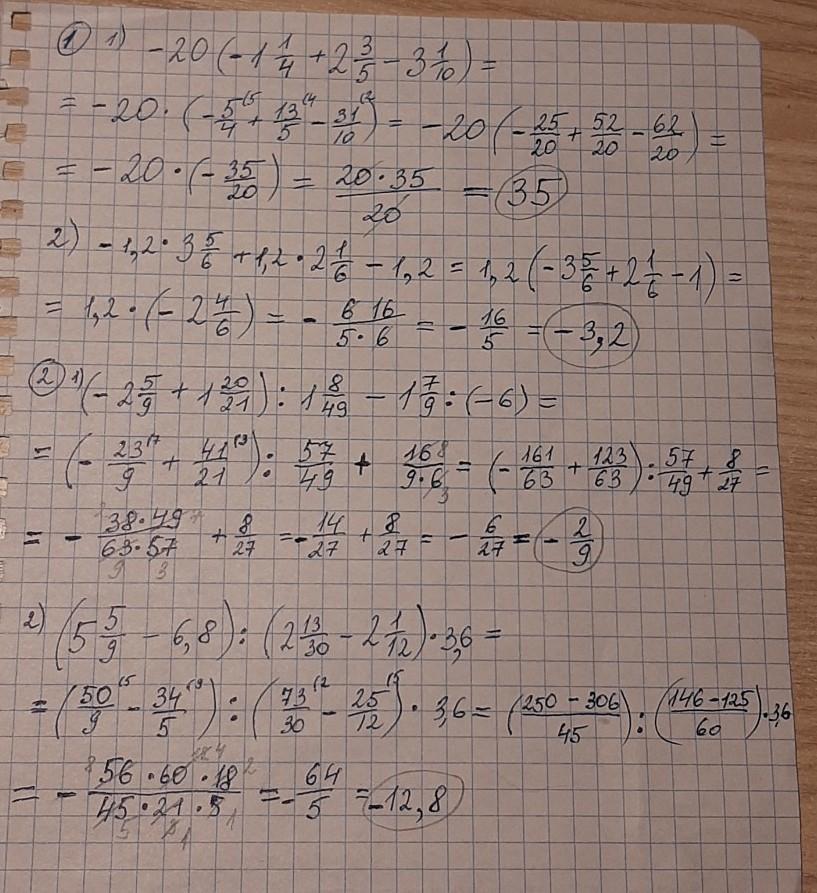 ① 1) -20(-1 1/4 + 2 3/5 - 3 1/10) =
= -20 · (-5/4 (5 + 13/5 (4 - 31/10 (2) = -20(-25/20 + 52/20 - 62/20) =
= -20 · (-35/20) = 20·35/20 = 35
2) -1,2 · 3 5/6 + 1,2 · 2 1/6 - 1,2 = 1,2(-3 5/6 + 2 1/6 - 1) =
= 1,2 · (-2 4/6) = - 6 16/5·6 = -16/5 = -3,2
② 1) (-2 5/9 + 1 20/21) : 1 8/49 - 1 7/9 : (-6) =
= (-23/9 (7 + 41/21 (3) : 57/49 + 16 8/9·6 3 = (-161/63 + 123/63) : 57/49 + 8/27 =
= - 38·49/63·57 9 3 + 8/27 = -14/27 + 8/27 = -6/27 = -2/9
2) (5 5/9 - 6,8) : (2 13/30 - 2 1/12) · 3,6 =
= (50/9 (5 - 34/5 (9) : (73/30 (2 - 25/12 (5) · 3,6 = (250 - 306/45) : (146 - 125/60) · 3,6
= - 8 56·60·18 2/45·21·5 = -64/5 = -12,8